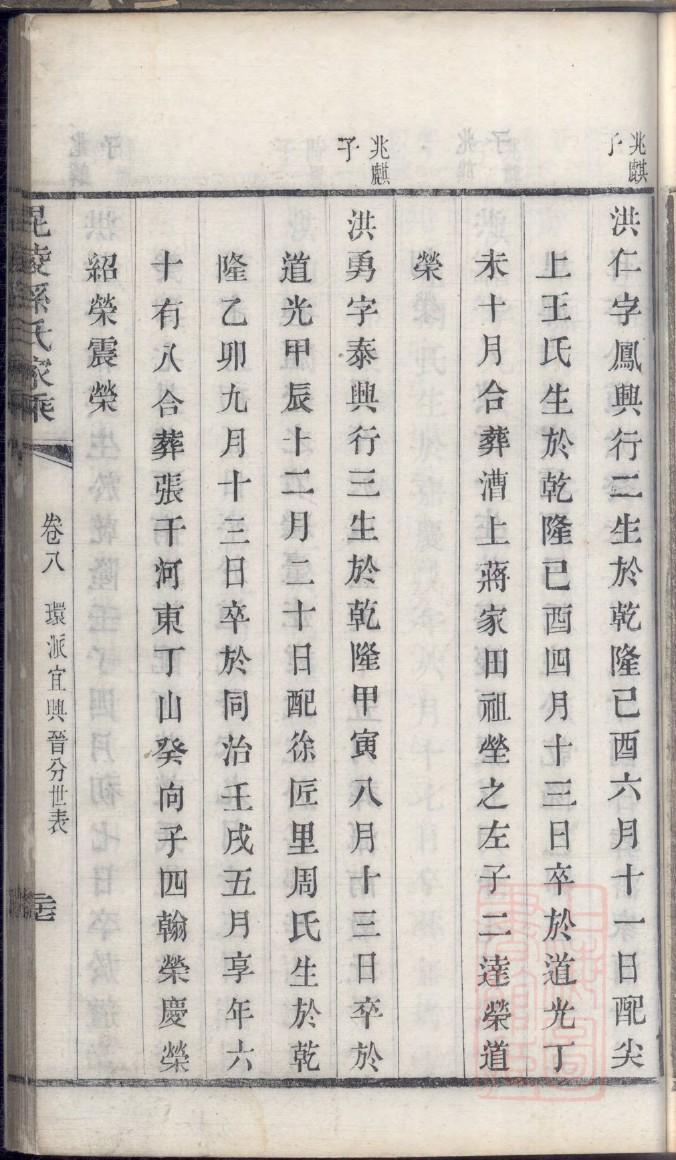 兆麒
子
洪仁字鳳興行二生於乾隆己酉六月十一日配尖
上王氏生於乾隆己酉四月十三日卒於道光丁
未十月合葬漕上蔣家田祖塋之左子二達榮道
榮
兆麒
子
洪勇字泰興行三生於乾隆甲寅八月十三日卒於
道光甲辰十二月二十日配徐匠里周氏生於乾
隆乙卯九月十三日卒於同治壬戌五月享年六
十有八合葬張干河東丁山癸向子四翰榮慶榮
紹榮震榮
毘陵孫氏家乘
卷八 環派宜興晉分世表